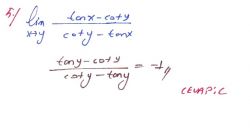 5.) lim x→y tanx - coty / coty - tanx
tany - coty / coty - tany = -1 //
CEVAP: C